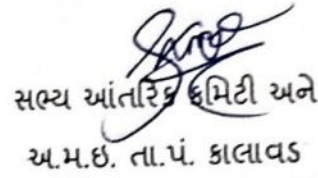 સભ્ય આંતરિક કમિટી અને
અ.મ.ઇ. તા.પં. કાલાવડ